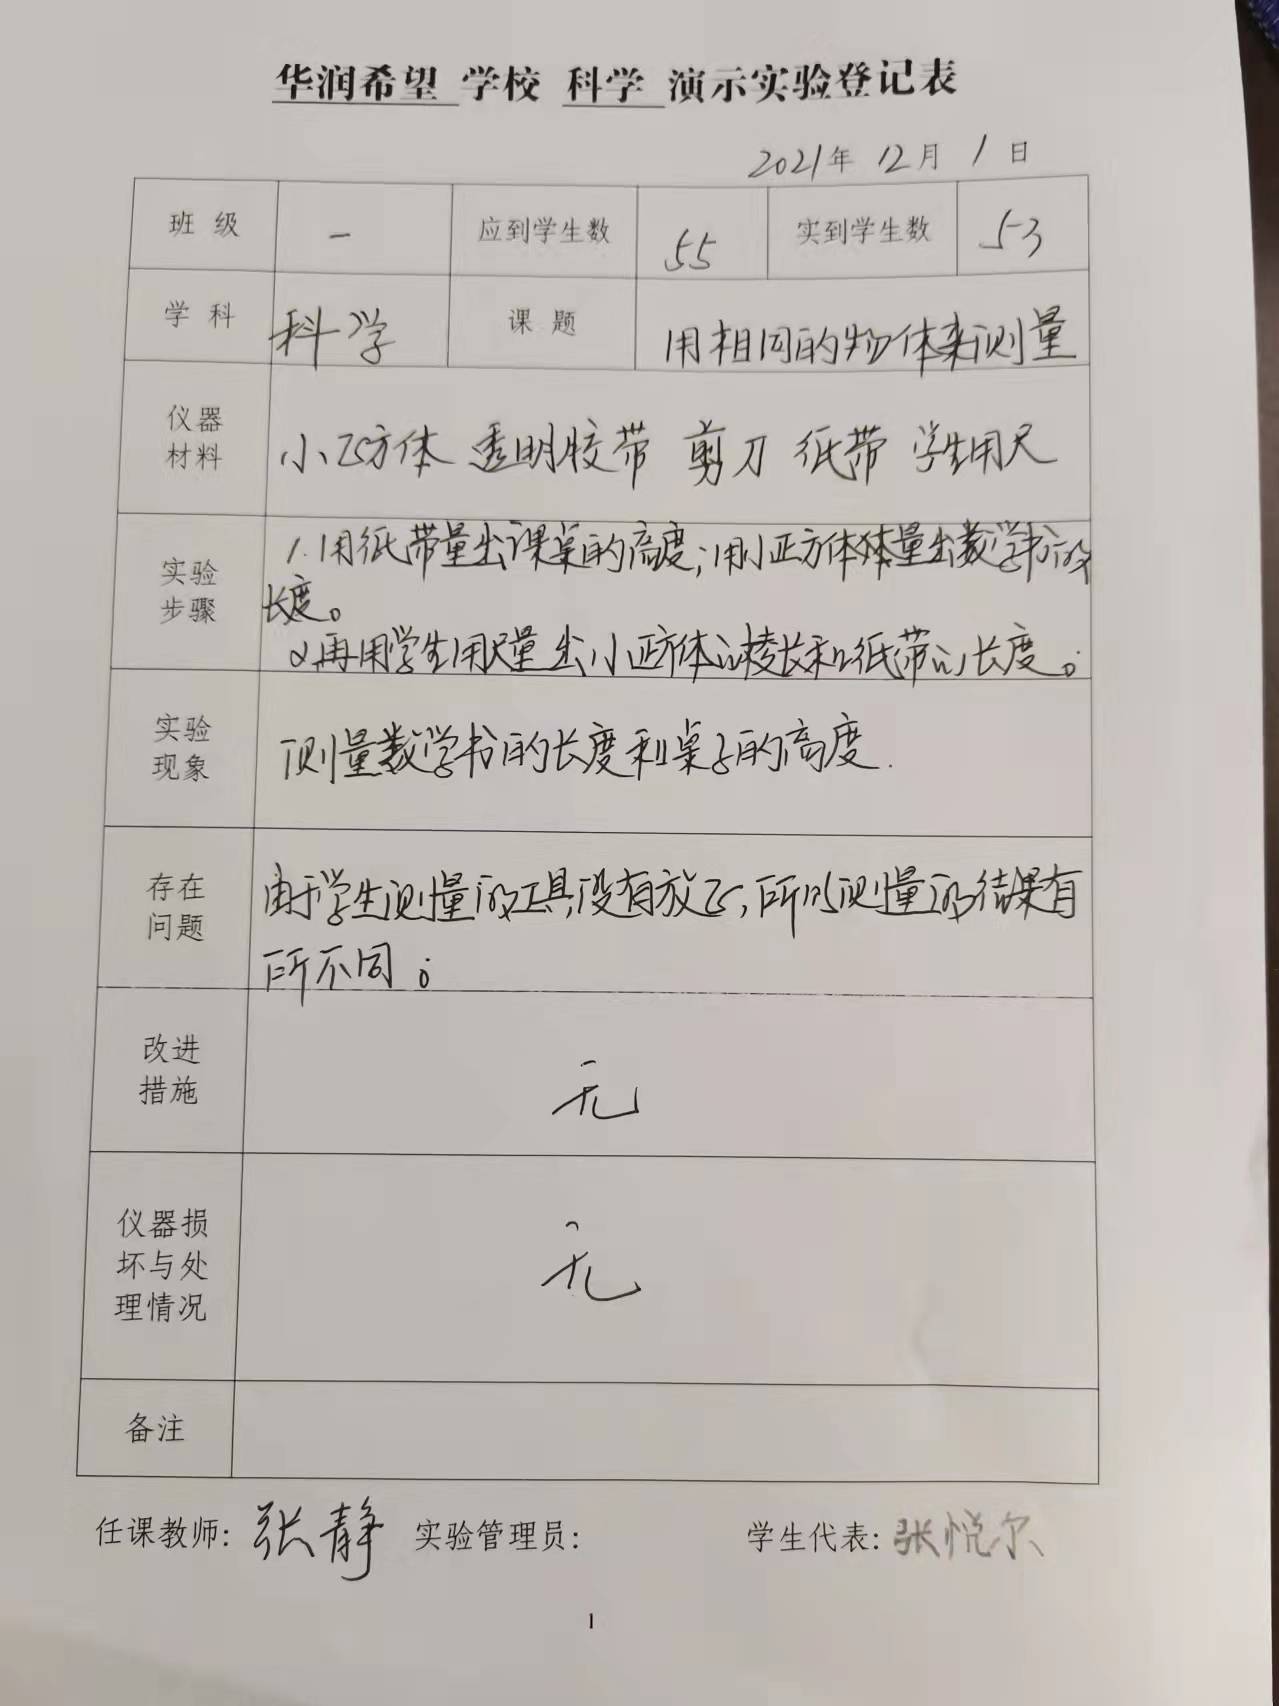 华润希望 学校 科学 演示实验登记表
2021年 12月 1日
班 级 一 应到学生数 55 实到学生数 53
学 科 科学 课 题 用相同的物体来测量
仪器
材料
小正方体 透明胶带 剪刀 纸带 学生用尺
实验
步骤
1.用纸带量出课桌的高度;用小正方体体量出数学书的
长度。
2.再用学生用尺量出小正方体的棱长和纸带的长度。
实验
现象
测量数学书的长度和桌子的高度.
存在
问题
由于学生测量的工具没有放正,所以测量的结果有
所不同。
改进
措施
无
仪器损
坏与处
理情况
无
备注
任课教师: 张静 实验管理员: 学生代表: 张悦尔
1